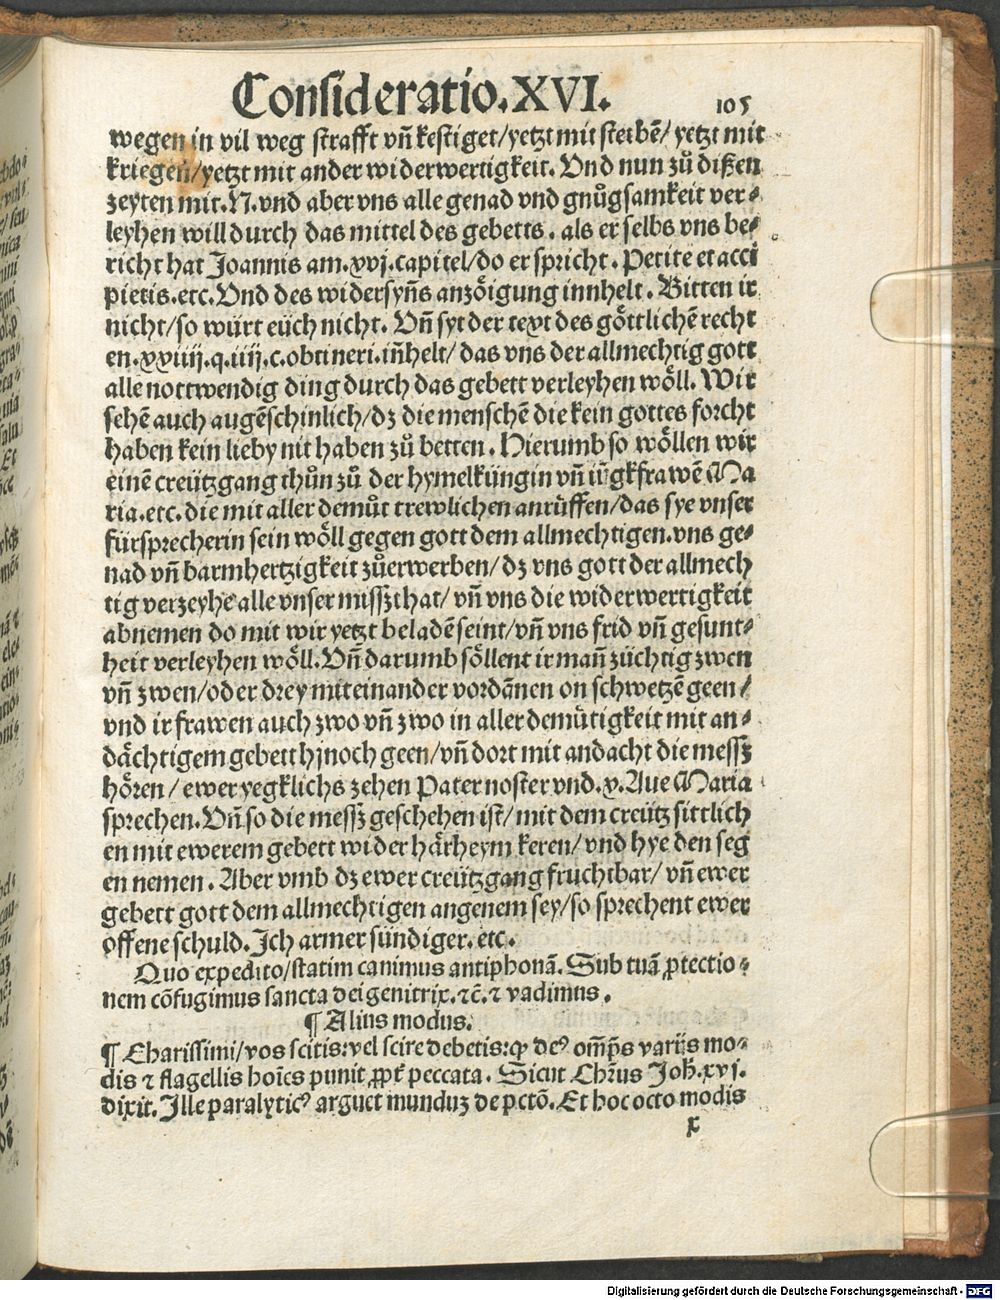 Consideratio.XVI.
105
wegen in vil weg strafft vñ kestiget/yetzt mit sterbē/yetzt mit
kriegen/yetzt mit ander widerwertigkeit. Vnd nun zů dißen
zeyten mit.N.vnd aber vns alle genad vnd gnůgsamkeit ver⸗
leyhen will durch das mittel des gebetts. als er selbs vns be⸗
richt hat Joannis am.xvj.capitel/do er spricht. Petite et acci
pietis.etc.Vnd des widersyñs anzöigung innhelt. Bitten ir
nicht/so würt eüch nicht. Vñ syt der text des göttlichē recht
en.xxiiij.q.iiij.c.obtineri.iñhelt/das vns der allmechtig gott
alle nottwendig ding durch das gebett verleyhen wöll. Wir
sehē auch augēschinlich/dz die menschē die kein gottes forcht
haben kein lieby nit haben zů betten. Hierumb so wöllen wir
einē creützgang thůn zů der hymelküngin vñ iũgkfrawē Ma
ria.etc.die mit aller demůt trewlichen anrüffen/das sye vnser
fürsprecherin sein wöll gegen gott dem allmechtigen.vns ge⸗
nad vñ barmhertzigkeit zůerwerben/dz vns gott der allmech
tig verzeyhe alle vnser missʒthat/vñ vns die widerwertigkeit
abnemen do mit wir yetzt beladē seint/vñ vns frid vñ gesunt⸗
heit verleyhen wöll.Vñ darumb söllent ir mañ züchtig zwen
vñ zwen/oder drey miteinander vordānen on schwetzē geen/
vnd ir frawen auch zwo vñ zwo in aller demütigkeit mit an⸗
dächtigem gebett hjnoch geen/vñ dort mit andacht die messʒ
hören/ewer yegklichs zehen Pater noster vnd.x.Aue Maria
sprechen.Vñ so die messʒ geschehen ist/mit dem creütz sittlich
en mit ewerem gebett wider härheym keren/vnd hye den seg
en nemen. Aber vmb dz ewer creützgang fruchtbar/vñ ewer
gebett gott dem allmechtigen angenem sey/so sprechent ewer
offene schuld. Ich armer sündiger. etc.
Quo expedito/statim canimus antiphonā. Sub tuā ꝓtectio⸗
nem cōfugimus sancta dei genitrix.⁊c̄.⁊ vadimus.
¶ Alius modus.
¶ Charissimi/vos scitis:vel scire debetis:ꝙ deꝰ om̄ps varijs mo⸗
dis ⁊ flagellis hoīes punit ꝓpt̄ peccata. Sicut Chr̄us Joh̄.xvj.
dixit. Ille paralyticꝰ arguet munduʒ de pctō. Et hoc octo modis
x
Digitalisierung gefördert durch die Deutsche Forschungsgemeinschaft - DFG